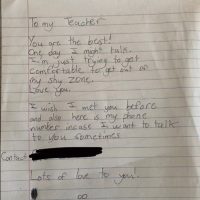 To my Teacher
You are the best!
One day I might talk.
I'm just trying to get
Comfortable to get out of
my shy zone.
Love you.
I wish I met you before
and also here is my phone
number incase I want to talk
to you sometimes
Contact
Lots of love to you.